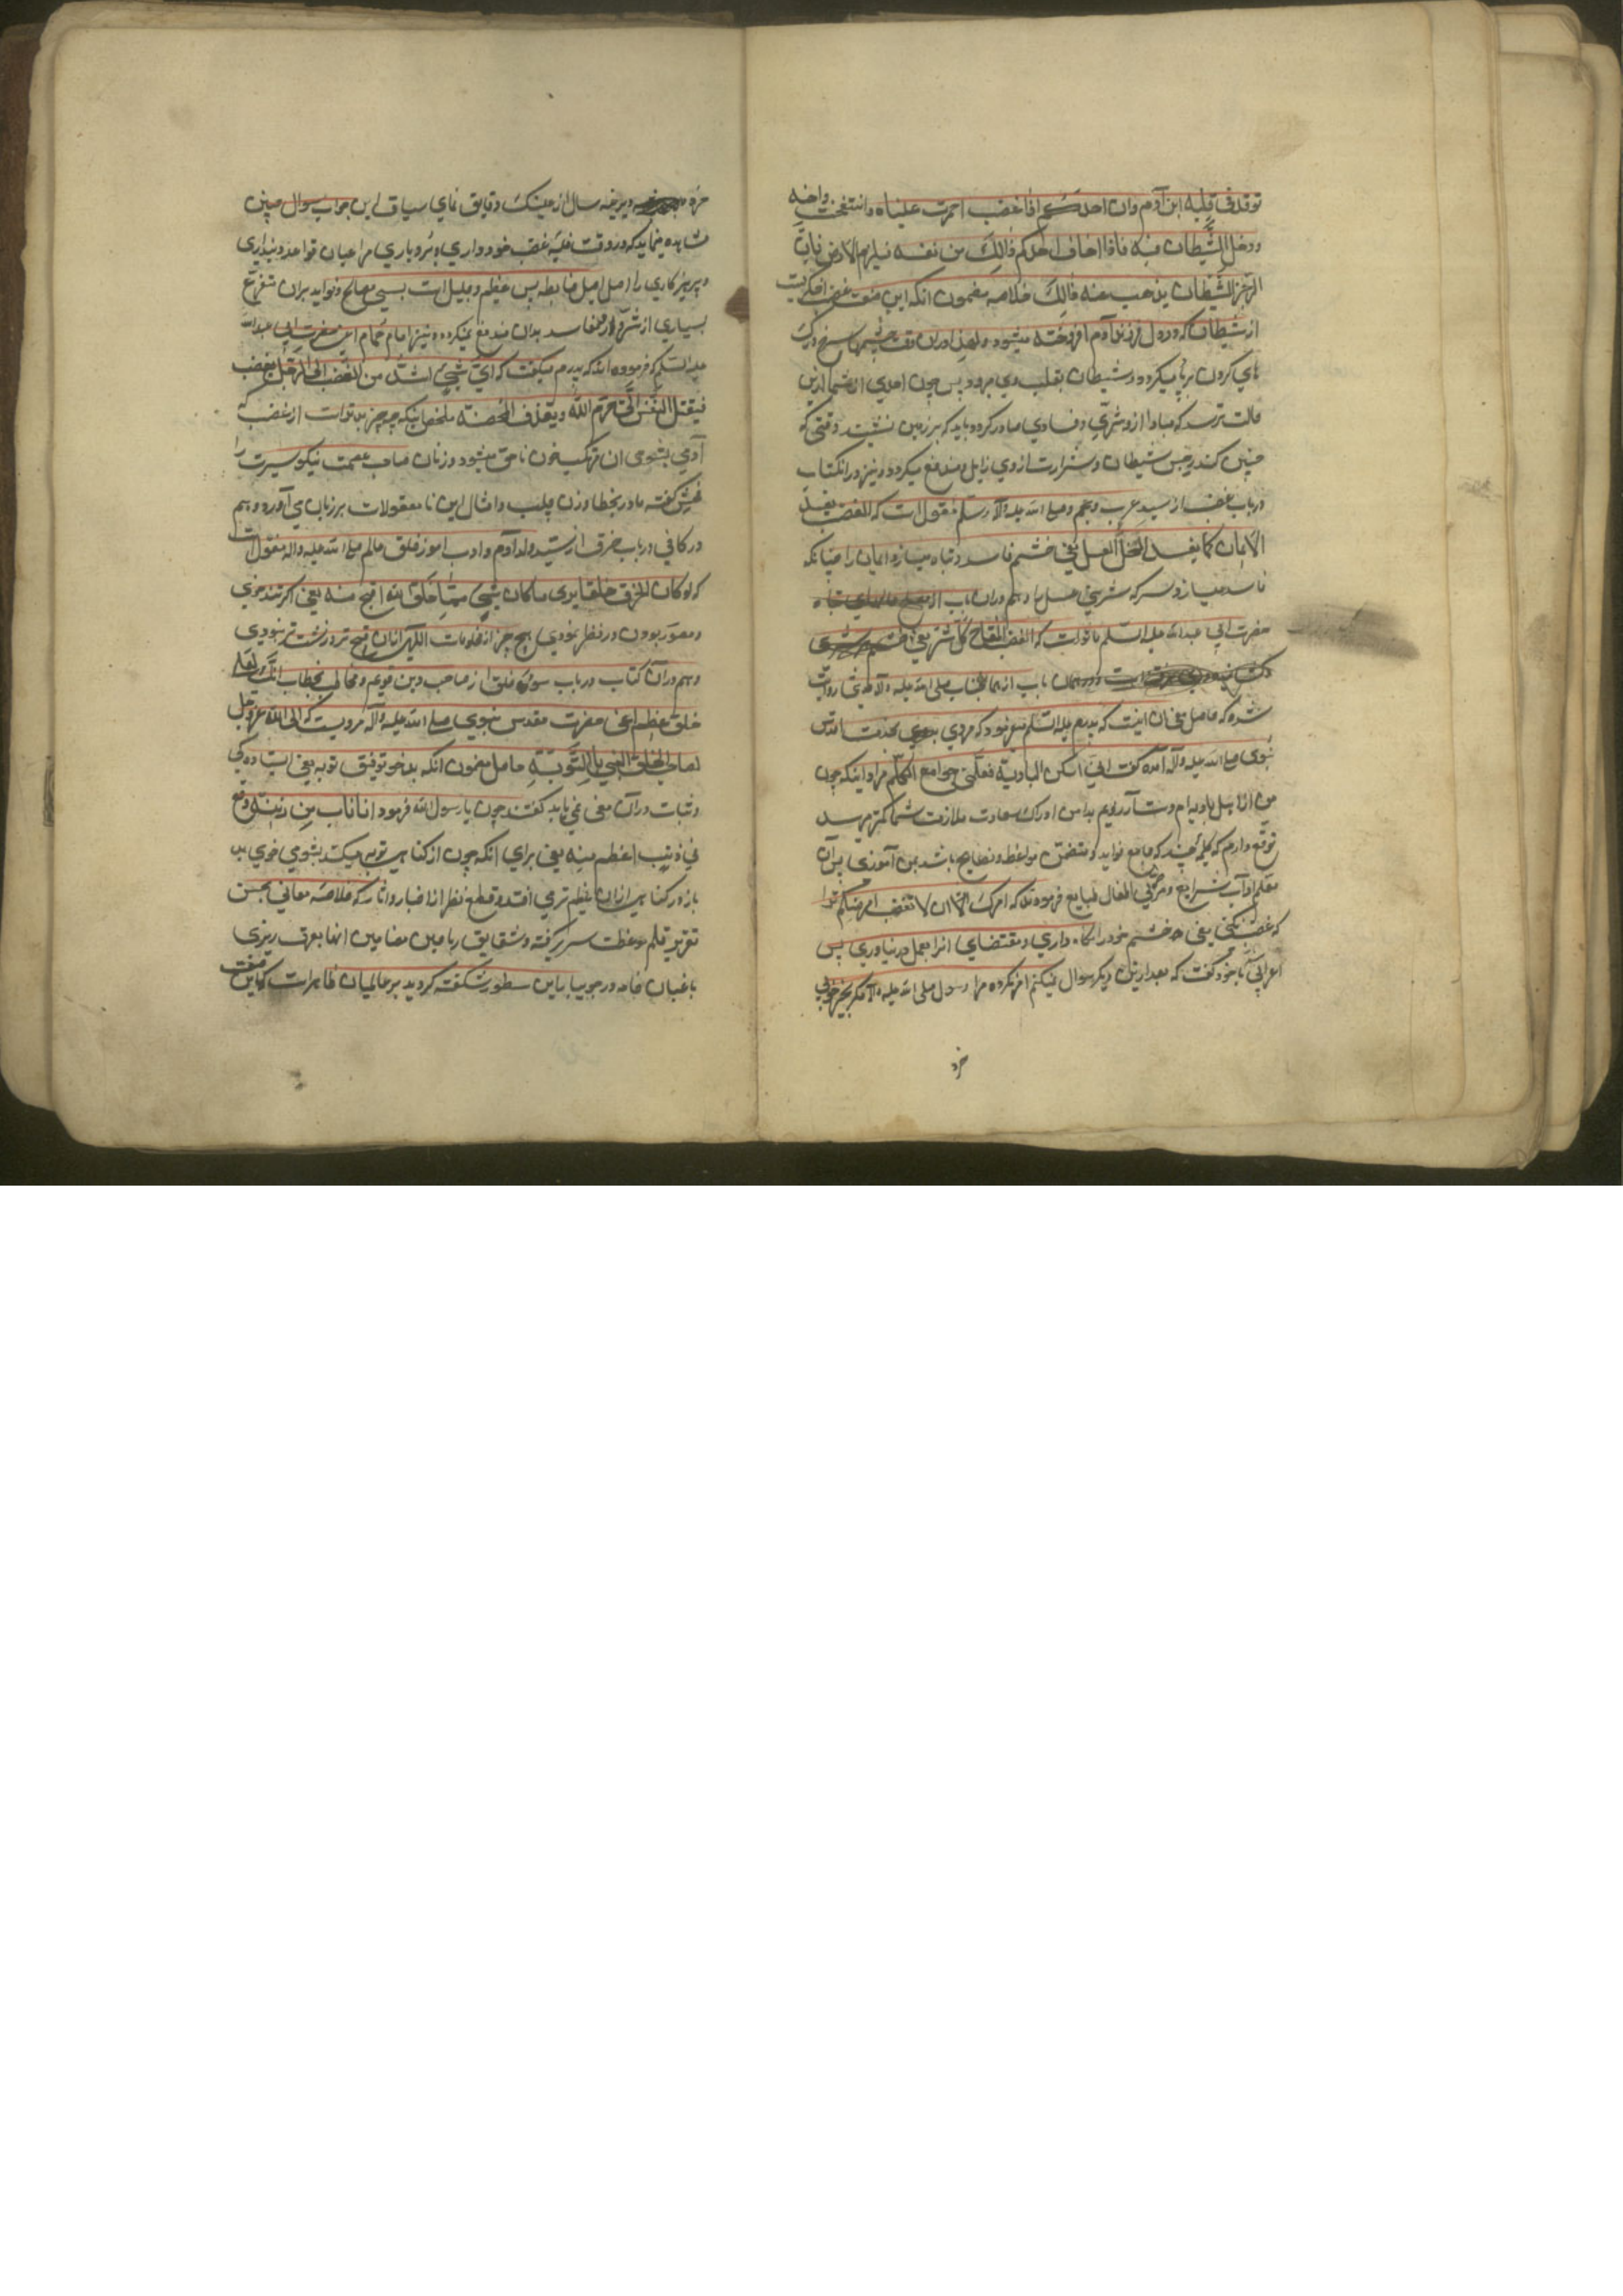 توقد في قلبه ابن آدم وان احدكم اذا غضب احمرت عيناه وانتفخت اوداجه
ودخل الشيطان فيه فاذا خاف احدكم ذالك من نفسه فليلزم الارض فان
الرجز الشيطان يذهب عنه ذالك خلاصه مضمون انكه اين غضب اخگريست
از شيطان كه در دل فرزند آدم افروخته ميشود و لهذا در ان وقت چشمها سرخ و رگ
هاي گردن برپا ميگردد و شيطان بقلب وي ميرود پس چون احدي از شما ازين
حالت ترسد كه مبادا ازو شري و فسادي صادر گردد بايد كه بر زمين نشيند وقتي كه
چنين كند رجس شيطان و شرارت از وي زايل و مندفع ميگردد و نيز در انكتاب
در باب غضب از سيد عرب و عجم صلي الله عليه و آله و سلم منقول است كه الغضب يفسد
الايمان كما يفسد الخل العسل يعني خشم فاسد و تباه ميسازد ايمان را چنانكه
فاسد ميسازد سركه شيريني عسل را و هم در ان باب از
حضرت ابي عبد الله عليه السلم ماثور است كه الغضب مفتاح كل شر يعني خشم
در همان باب از همانجناب صلي الله عليه و آله روايت
شده كه حاصل معني ان اينست كه پدرم عليه السلم ميفرمود كه مردي بدوي بخدمت اقدس
نبوي صلي الله عليه و آله آمده گفت اني اسكن البادية فعلمني جوامع الكلم مراد اينكه چون
من از اهل باديه ام و دست آرزويم بدامن ادراك سعادت ملازمت شما كمتر ميرسد
توقع دارم كه كلمه چند كه جامع فوايد و متضمن مواعظ و نصايح باشد بمن آموزي پس آن
معلم آداب شرايع و مربي اطفال طبايع فرمودند كه امرك ان لا تغضب امر ميكنم ترا
كه غضب نكني يعني خشم خود را نگاه داري و مقتضاي انرا بعمل در نياوري پس
اعرابي با خود گفت كه بعد ازين ديگر سوال نميكنم امر نكرده مرا رسول صلي الله عليه و آله مگر بخير و خوبي
خرد
خرده و ديرينه سال از عينك دقايق نماي سياق اين جواب سوال چنين
مشاهده مينمايد كه در وقت غلبه غضب خود داري و بردباري مر اعيان قواعد دينداري
و پرهيزكاري را اصل اصيل ضابطه بس عظيم و جليل است بسي مصالح و فوايد بران متفرع
بسياري از شرور و مفاسد بدان مندفع ميگردد و نيز امام همام اعني حضرت ابي عبد الله
عليه السلم فرموده اند كه پدرم ميگفت كه اي شيء اشد من الغضب ان الرجل يغضب
فيقتل النفس التي حرم الله و يقذف المحصنة ملخص اينكه چه چيز بدتر است از غضب كه
آدمي بشومي ان مرتكب خون ناحق ميشود و زنان صاحب عصمت نيكو سيرت را
فحش گفته مادر بخطا و زن جلب و امثال اين نا معقولات بر زبان مي آورد و هم
در كافي در باب خرق از سيد ولد آدم و ادب آموز خلق عالم صلي الله عليه و اله منقول است
كه لو كان الخرق خلقا يري ما كان شيء مما خلق الله اقبح منه يعني اگر تند خوئي
مصور بودي و در نظر نمودي هيچ چيز از مخلومات الهي از ان قبيح تر و زشت تر نبودي
و هم در ان كتاب در باب سوء خلق از صاحب دين قويم و مخاطب بخطاب انك لعلي
خلق عظيم اعني حضرت مقدس نبوي صلي الله عليه و آله مرويست كه ابي الله عز و جل
لصاحب الخلق السيئ بالتوبة حاصل مضمون انكه بدخو توفيق توبه يعني ايستادگي
و ثبات در آن معني نمي يابد گفتند چون يا رسول الله فرمود اذا تاب من ذنب وقع
في ذنب اعظم منه يعني براي انكه چون از گناهي توبه ميكند بشومي خوي بد
باز در گناهي از ان عظيم تر مي افتد و قطع نظر از اخبار و اثار كه خلاصه معاني بحسن
تقرير قلم موعظت سر بر گرفته و شقايق رياحين مضامين انها بعرق ريزي
باغبان خامه در جويبار اين سطور شگفته گرديد بر عالميان ظاهر است كه اين صفت